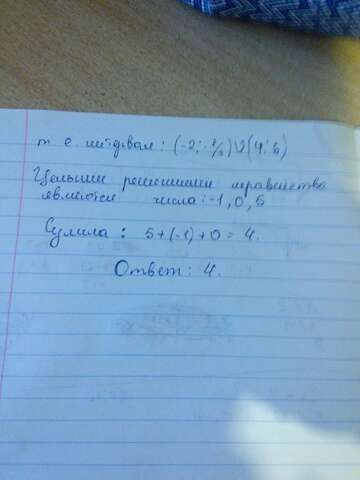 т е. интервал: (-2; -1/3) ∪ (4; 6)
Целыми решениями неравенства
являются числа: -1, 0, 5
Сумма: 5+(-1)+0 = 4.
Ответ: 4.